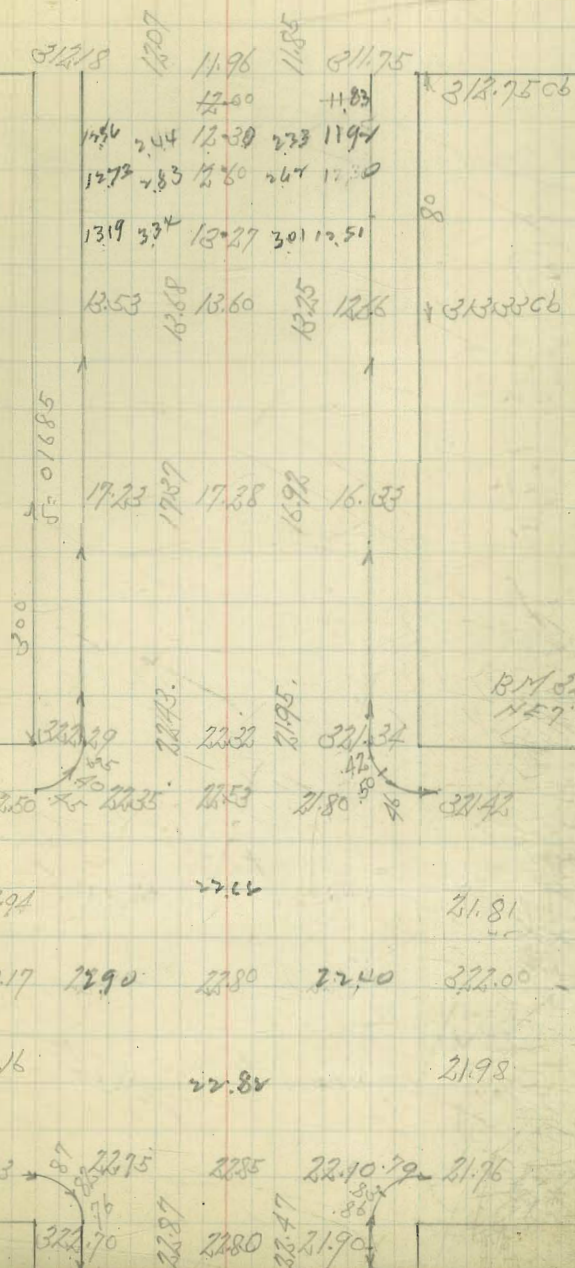 312.18 12.07 11.96 11.85 311.75
12.00 11.83 312.75 cb
2.44 12.30 2.33 11.92
12.73 2.83 12.60 2.62 12.30
80
13.19 3.34 13.27 3.01 12.51
13.53 13.68 13.60 13.25 12.66 313.33 cb
S=.01685
17.23 17.37 17.28 16.92 16.33
300
BM
322.29 22.43 22.32 21.95 321.34
.35 .42
.40 .50
2.50 .45 22.35 22.53 21.80 .46 321.42
22.62
.94 21.81
.17 22.90 22.80 22.40 322.00
.16 22.82 21.98
3 .87 22.75 22.85 22.10 .79 21.76
.76 .86
322.70 22.87 22.80 22.47 21.90